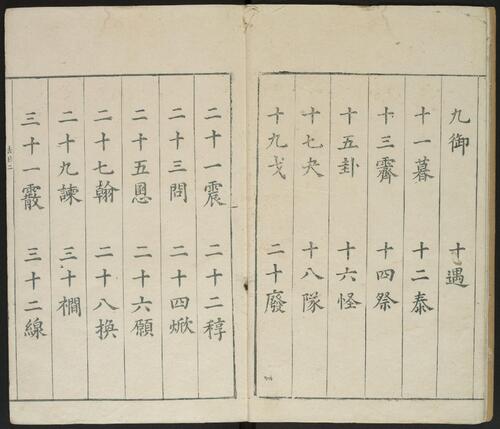 九御 十遇
十一暮 十二泰
十三霽 十四祭
十五卦 十六怪
十七夬 十八隊
十九代 二十廢
二十一震 二十二稕
二十三問 二十四焮
二十五慁 二十六願
二十七翰 二十八換
二十九諫 三十襇
三十一霰 三十二線